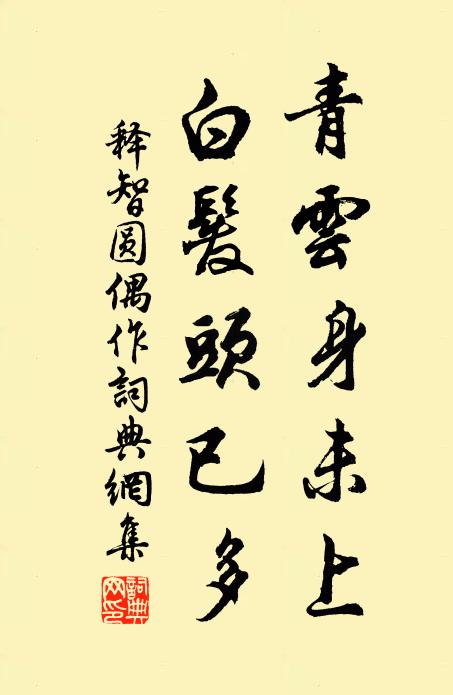 青雲身未上
白髮頭已多
释智圆偶作詞典網集
詞典网印